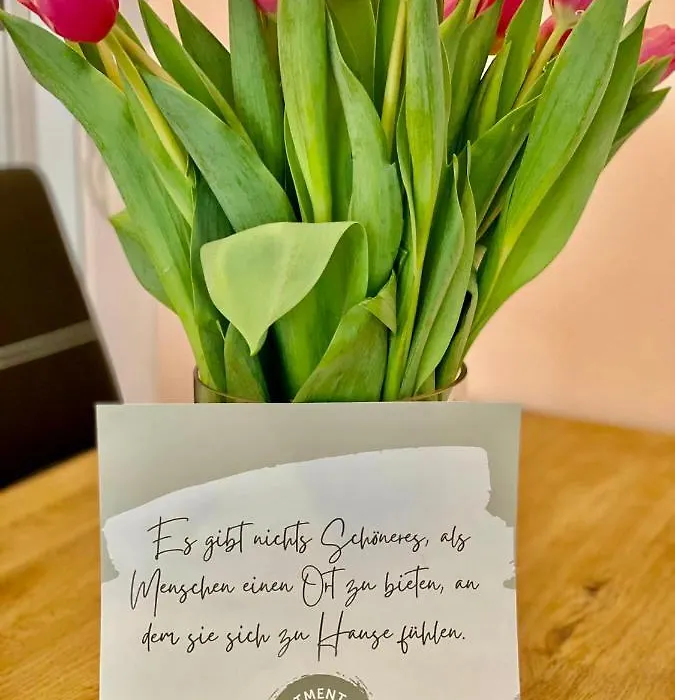 Es gibt nichts Schöneres, als
Menschen einen Ort zu bieten, an
dem sie sich zu Hause fühlen.